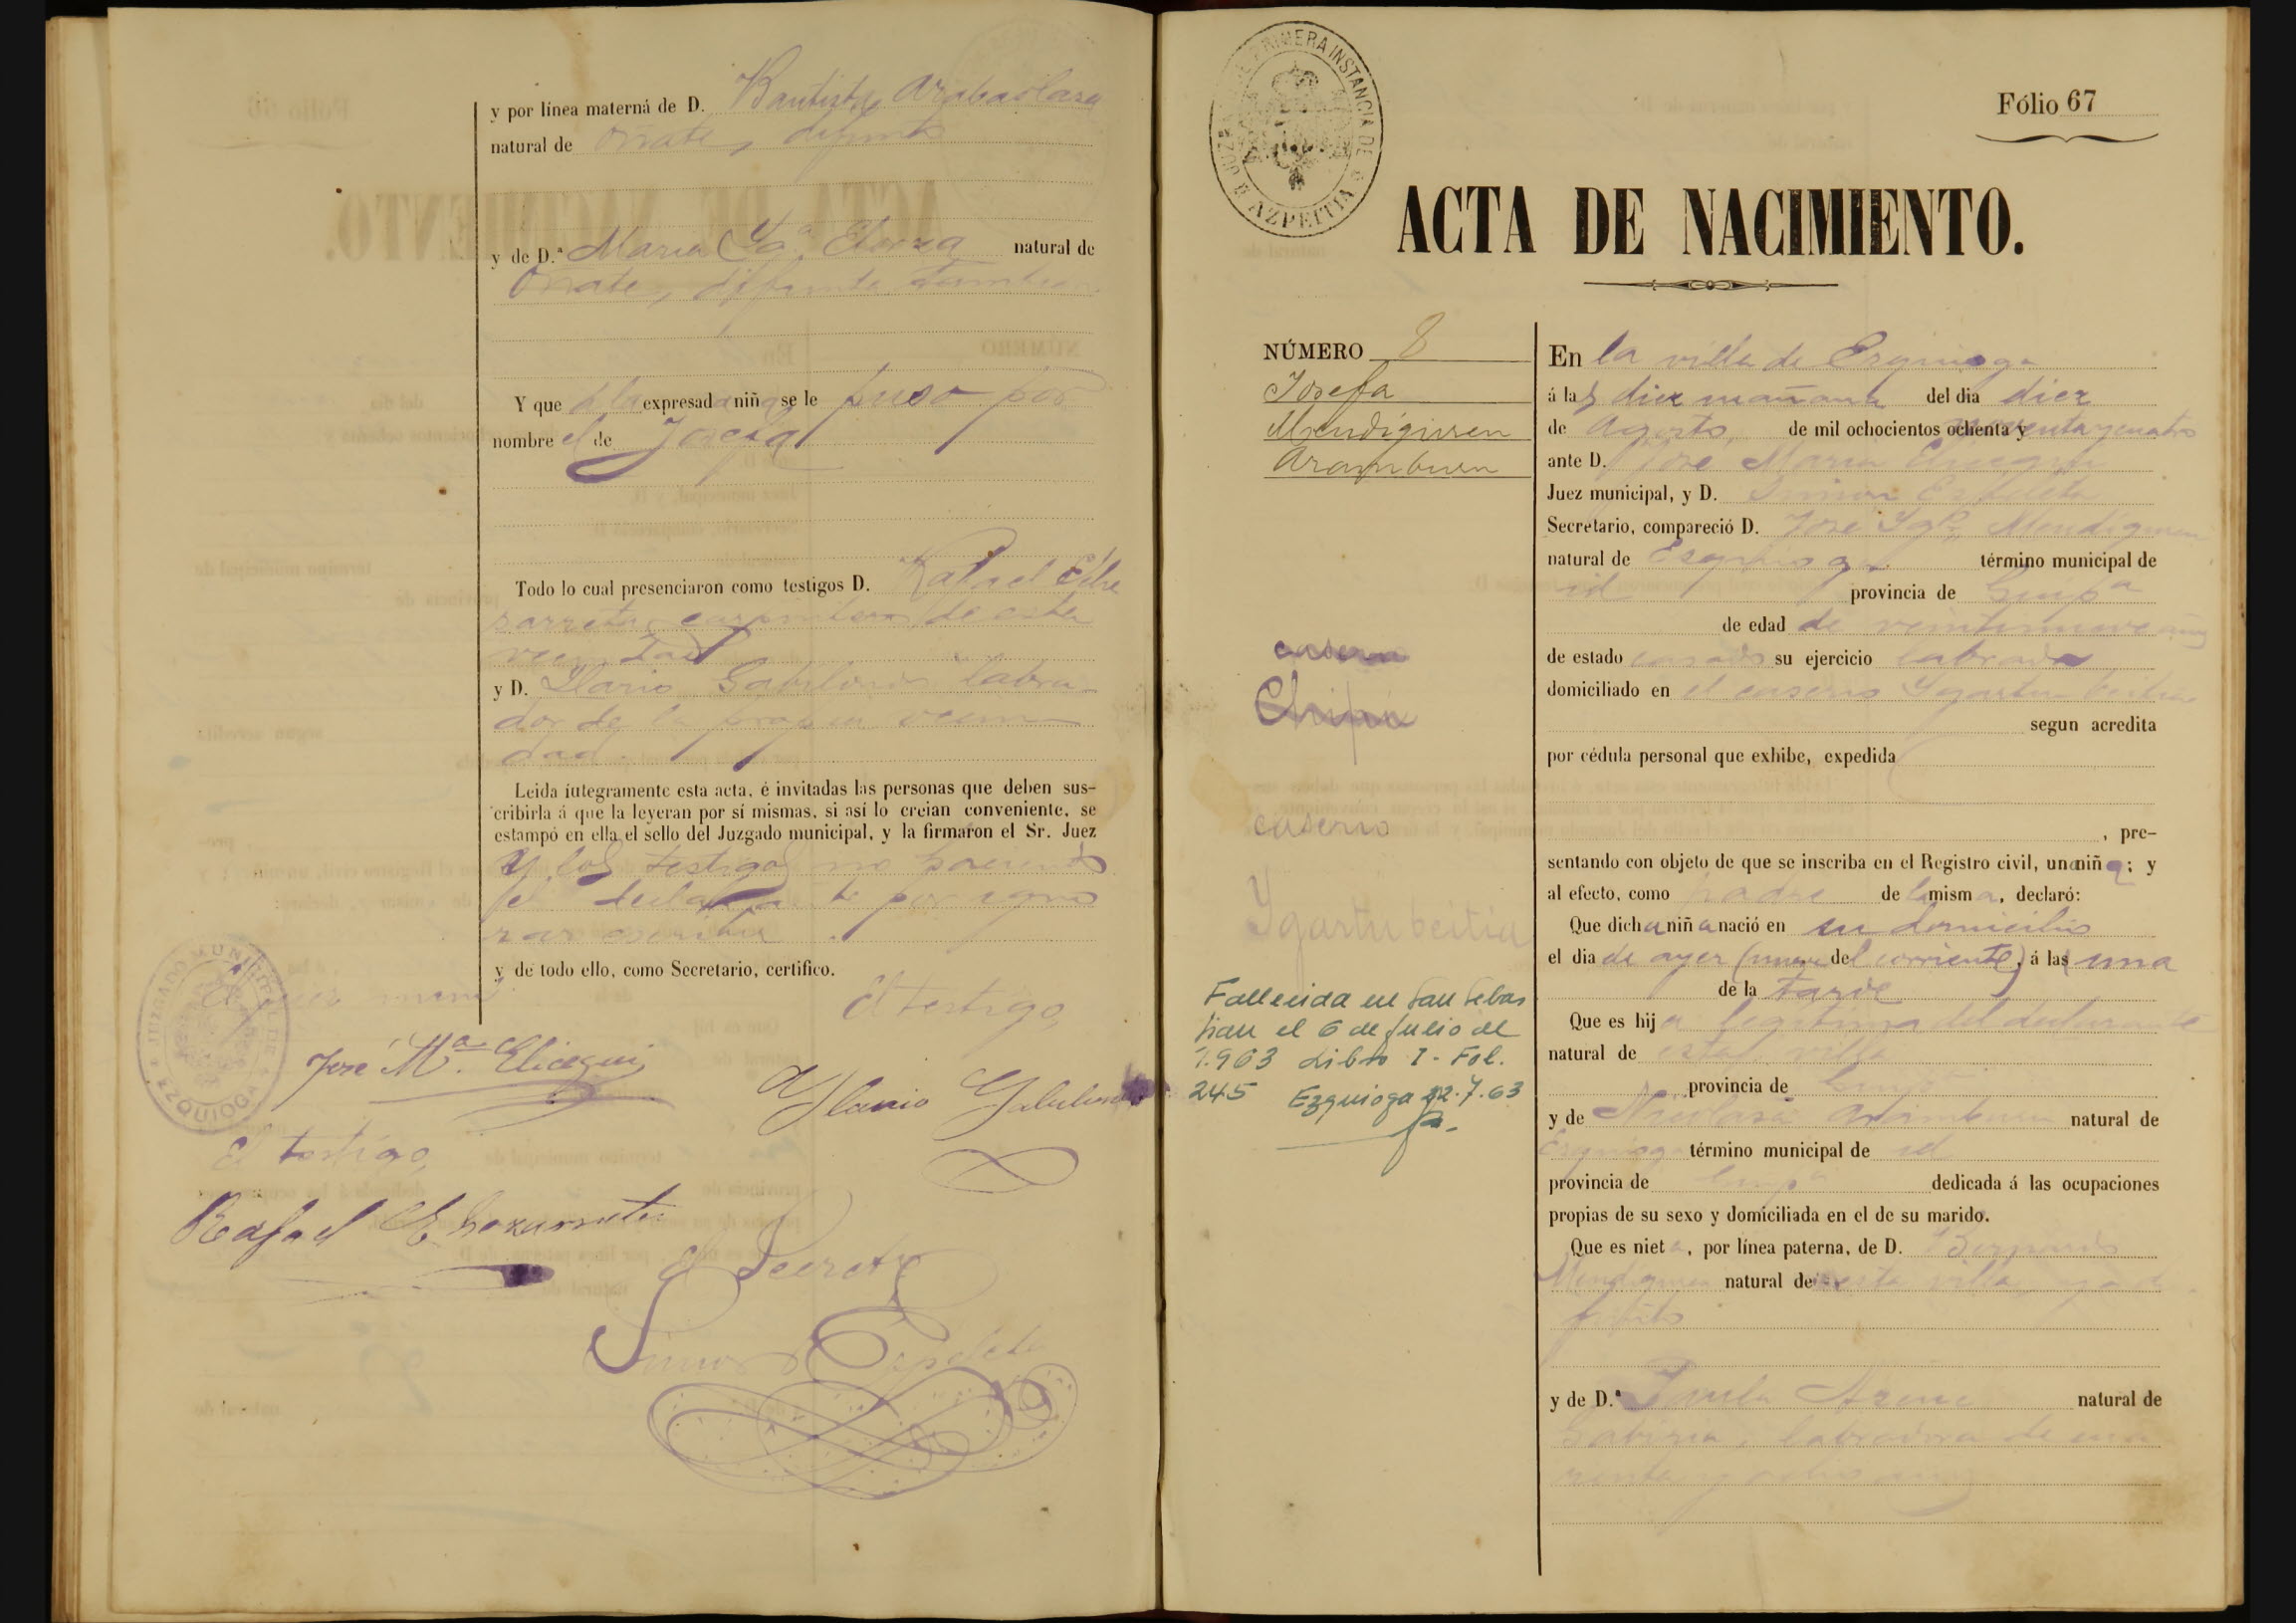 y por línea materná de D. Bautista Arabaolaza
natural de Oñate, difunto
y de D.ª Maria Ja.ª Elorza natural de
Oñate, difunta tambien
Y que á la expresada niña se le puso por
nombre el de Josefa
Todo lo cual presenciaron como testigos D. Rafael Eche
zarreta carpintero de esta
vecindad
y D. Ilario Gabilondo labra-
dor de la propia vecin
dad.
Leida integramente esta acta, é invitadas las personas que deben sus-
cribirla á que la leyeran por sí mismas, si así lo creian conveniente, se
estampó en ella el sello del Juzgado municipal, y la firmaron el Sr. Juez
y los testigos no haciendo
el declarante por igno
rar escribir.
y de todo ello, como Secretario, certifico.
El testigo,
José M.ª Elicegui
Ylario Gabilondo
JUZGADO MUNICIPAL DE EZQUIOGA
El testigo,
Rafael Echezarreta
El Secret.º
Simon Ezpeleta
JUZGADO DE PRIMERA INSTANCIA DE AZPEITIA
Fólio 67
ACTA DE NACIMIENTO.
NÚMERO 8
Josefa
Mendiguren
Aramburu
caserio
caserio
Ygartubeitia
Fallecida en San Sebas
tian el 6 de Julio de
1.963 Libro I - Fol.
245 Ezquioga 12.7.63
En la villa de Ezquioga
á las diez mañana del dia diez
de Agosto de mil ochocientos ochenta y noventa y cuatro
ante D. José Maria Elicegui
Juez municipal, y D. Simon Ezpeleta
Secretario, compareció D. José Ig.º Mendiguren
natural de Ezquioga término municipal de
id provincia de Guip.ª
de edad de veintinueve años
de estado casado su ejercicio labrador
domiciliado en el caserio Ygartubeitia
segun acredita
por cédula personal que exhibe, expedida
, pre-
sentando con objeto de que se inscriba en el Registro civil, una niña; y
al efecto, como padre de la misma, declaró:
Que dicha niña nació en su domicilio
el dia de ayer (nueve del corriente), á las una
de la tarde
Que es hija legitima del declarante
natural de esta villa
provincia de Guip.ª
y de Nicolasa Aramburu natural de
Ezquioga término municipal de id
provincia de Guip.ª dedicada á las ocupaciones
propias de su sexo y domiciliada en el de su marido.
Que es nieta, por línea paterna, de D. Bernardo
Mendiguren natural de esta villa, ya di
funto
y de D.ª Paula natural de
Gabiria, labradora de
y ocho años